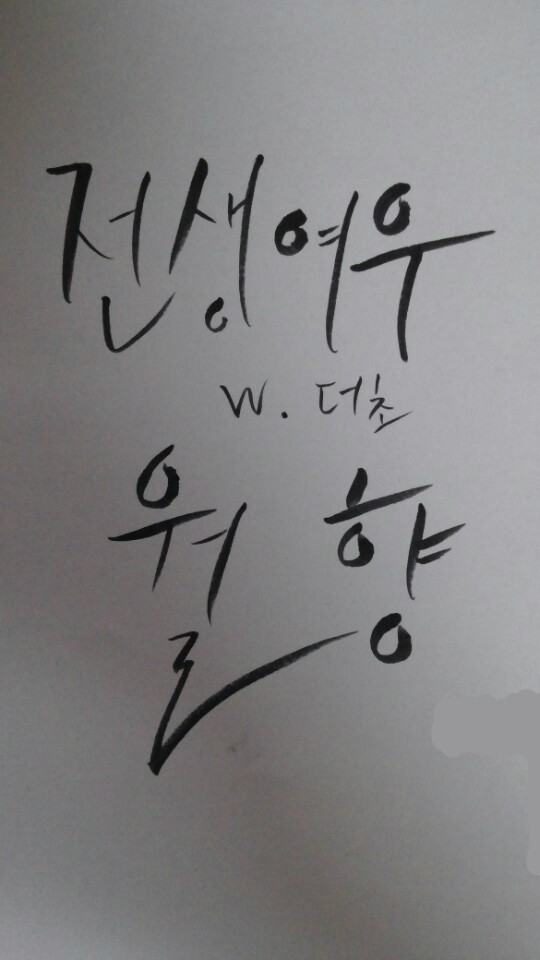 전생여우
W. 더초
월향